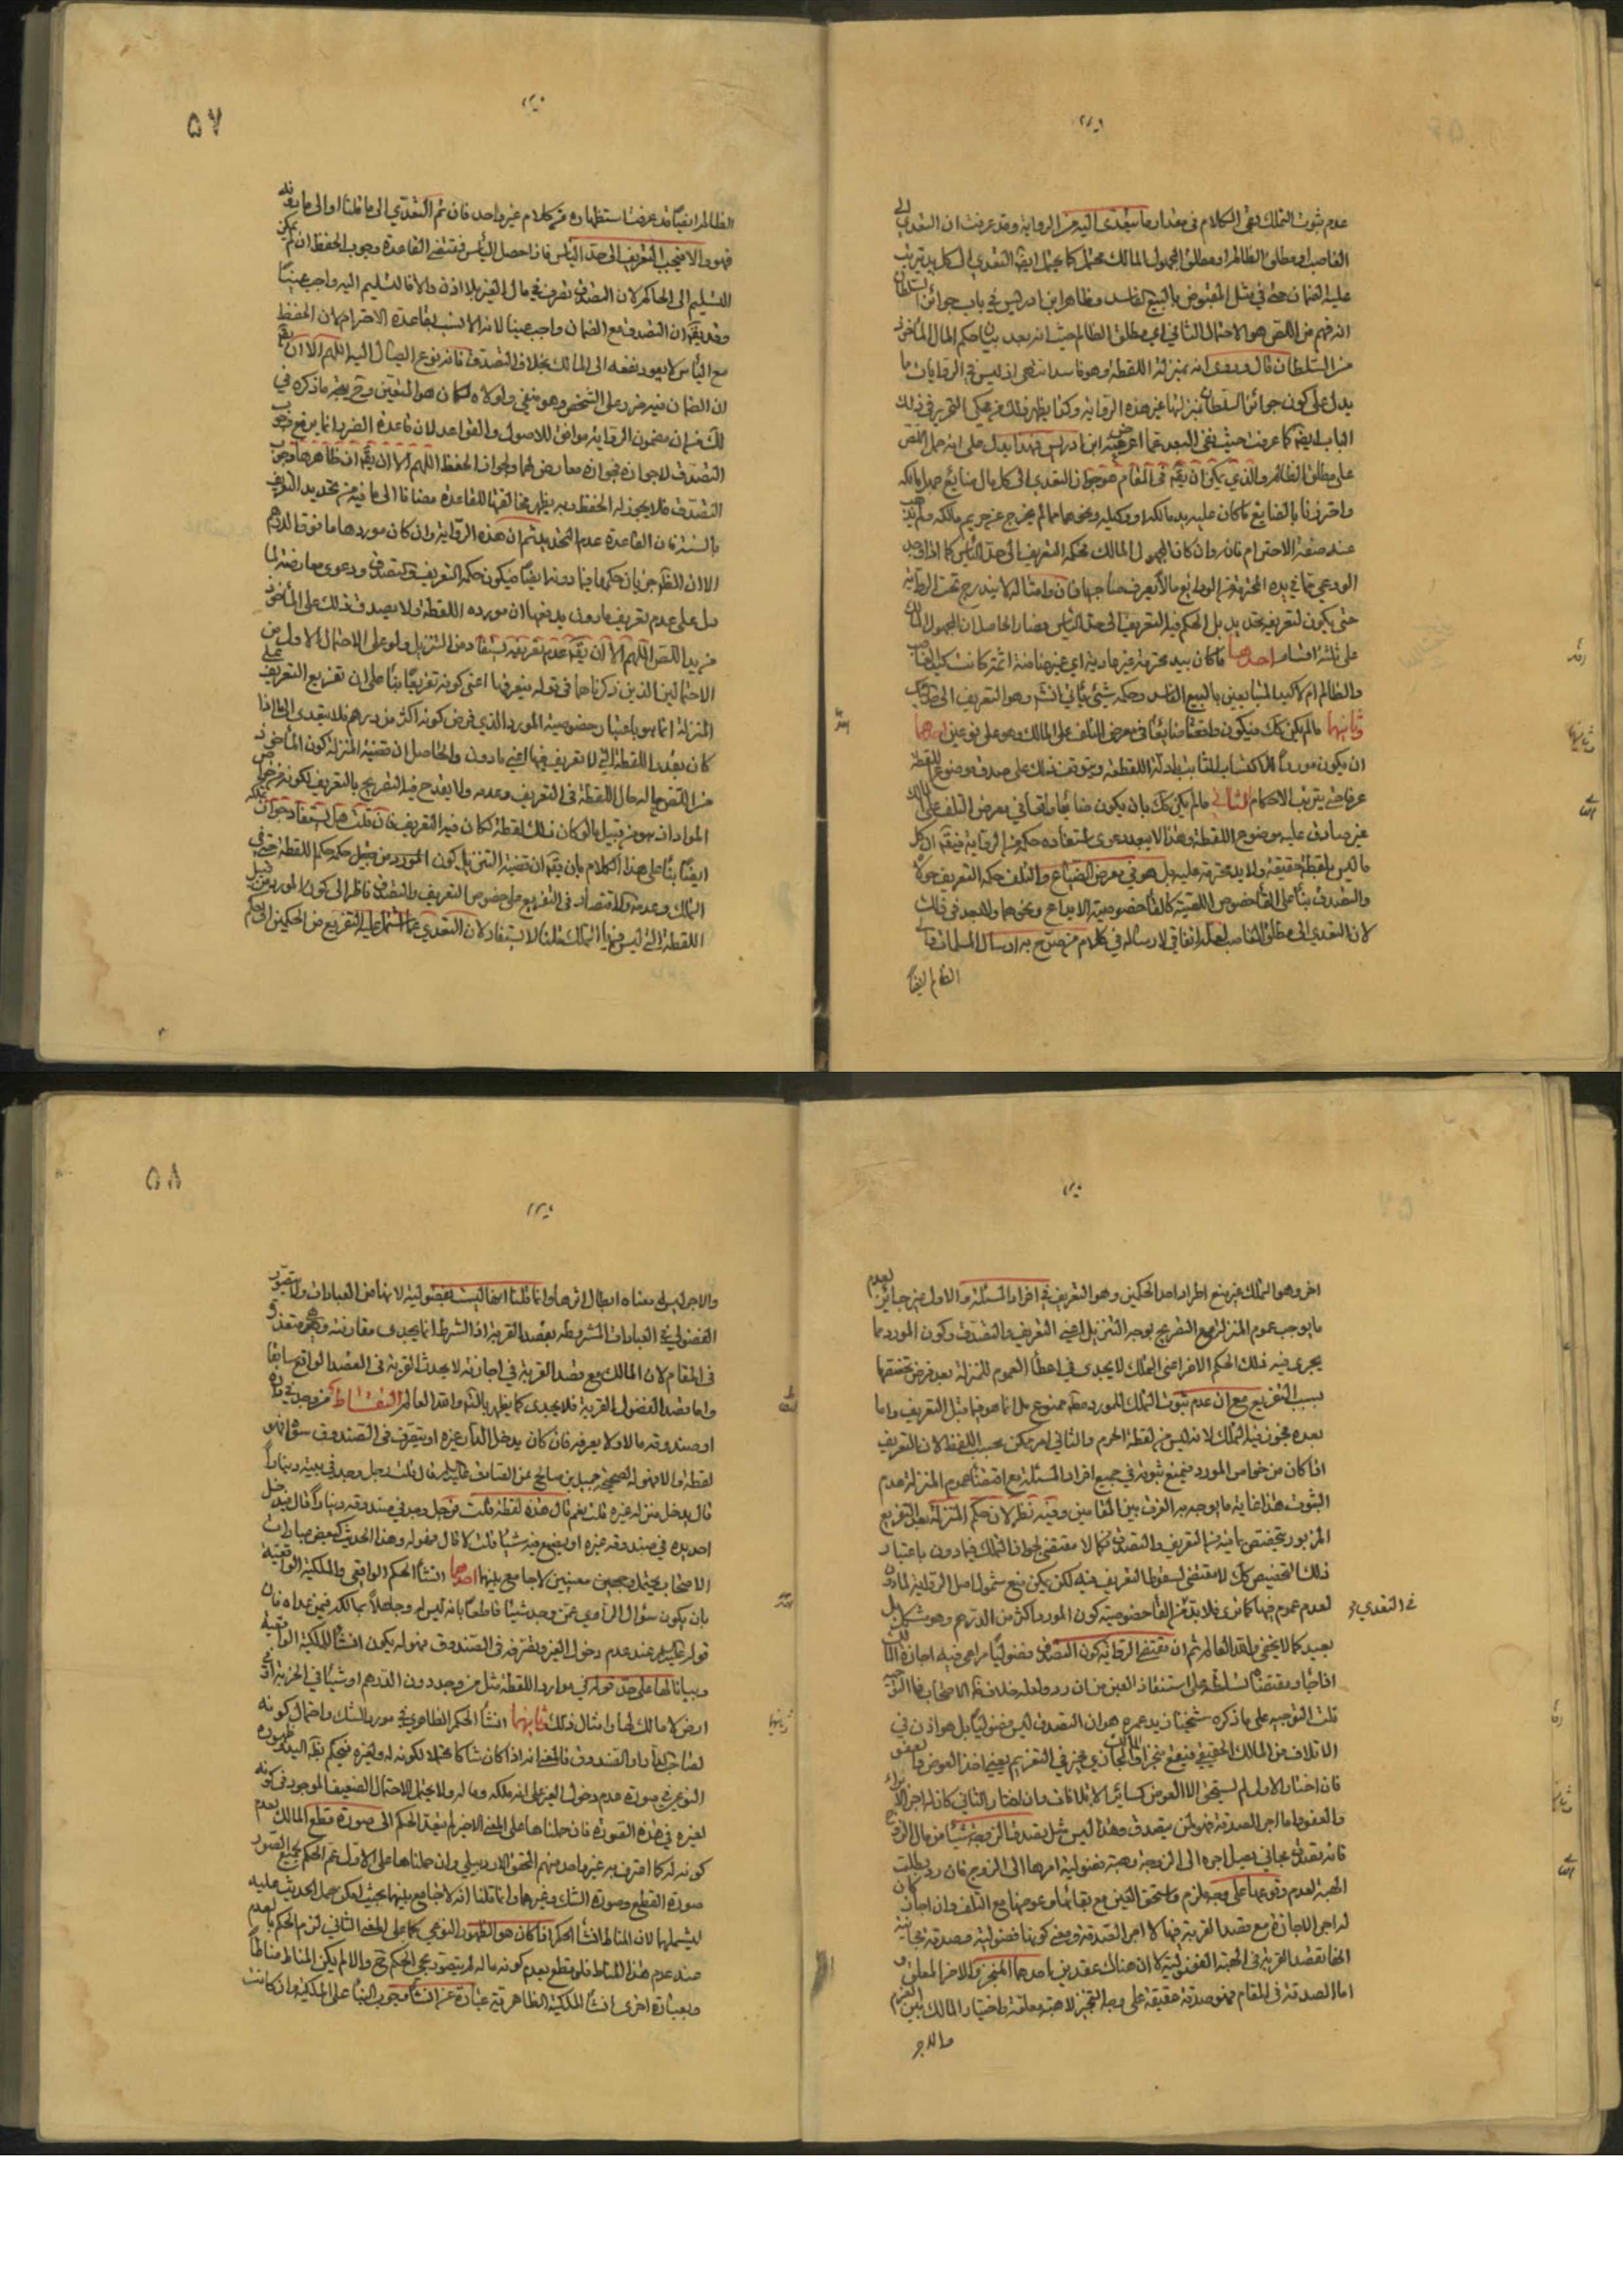 عدم ثبوت التملك بقي الكلام في مقدار ما يتعدى اليه من الرواية وقد عرفت ان التعدي الى
الغاصب او مطلق الظالم او مطلق المجهول المالك محتمل كما يحتمل ايضا التعدي الى كل يد يترتب
عليه الضمان حتى في مثل المقبوض بالبيع الفاسد وظاهر ابن ادريس في باب جوائز السلطان
انه فهم من اللص هو الاحتمال الثاني اي مطلق الظالم حيث انه بعد بيان حكم المال المأخوذ
من السلطان قال وروى انه بمنزلة اللقطة وهو فاسد انتهى اذ ليس في الروايات ما
يدل على كون جوائز السلطان بمنزلتها غير هذه الرواية وكذا يظهر ذلك من محكي التحرير في ذلك
الباب ايضا كما عرفت حيث نفى البعد عما اعرض عنه ابن ادريس فهذا يدل على انه حمل اللص
على مطلق الظالم والذي يمكن ان يقه في المقام هو جواز التعدي الى كل مال ضايع جهل مالكه
واحترزنا بالضايع عما كان عليه يد مالكه او وكيله ونحوهما مما لم يخرج عن حريم مالكه ولم يذهب
عنه صفة الاحترام فانه وان كان المجهول المالك محكمه التعريف الى حد اليأس كما اذا
الودعي مما في يده المحترمة من الودايع ما لا يعرف صاحبها فان وامثاله لا يندرج تحت الرواية
حتى يكون لتعريفه تحديد بل الحكم فيه التعريف الى حد اليأس فصار الحاصل ان المجهول المالك
على ثلثة اقسام احدها ما كان بيد محترمة غير عادية اي غير ضامنة
والظالم ام لا كيد المتبايعين بالبيع الفاسد وحكمه شيئ يأتي انشه وهو التعريف الى حد
ثانيها ما لم يكن كك فيكون واقعا ضايعا في معرض التلف على المالك وهو على نوعين احدهما
ان يكون موردا للاكتساب الثابت بادلة اللقطة ويتوقف ذلك على صدق موضوع اللقطة
عرفا حتى يترتب الاحكام الثاني ما لم يكن كك بان يكون ضايعا واقعا في معرض التلف على المالك
غير صادق عليه موضوع اللقطة وهذا لا يبعد دعوى استفادة حكمه من الرواية فيقه ان كل
ما ليس بلقطة حقيقة ولا يد محترمة عليه بل هو في معرض الضياع والتلف حكمه التعريف حولا
والتصدق بناء على الغاء خصوص اللصية كالغاء خصوصية الايداع ونحوهما ولا بعد في ذلك
لان التعدي الى مطلق الغاصب لعله اتفاقي لارساله في كلام من صرح به ارسال المسلمات
الظالم ايضا
۵۷
الظالم ايضا قد عرفت استظهاره من كلام غير واحد فان تم التعدي الى ما قلنا او الى ما
فهو والا فيجب التعريف الى حد اليأس فاذا حصل اليأس فمقتضى القاعدة وجوب الحفظ ان لم يمكن
التسليم الى الحاكم لان التصدق تصرف في مال الغير بلا اذن والا فالتسليم اليه واجب عينا
وقد يقه ان التصدق مع الضمان واجب عينا لانه الانسب بقاعدة الاحترام لان الحفظ
مع اليأس لا يعود نفعه الى المالك بخلاف التصدق فانه نوع ايصال اليه اللهم الا ان يقه
ان الضمان فيه ضرر على الشخص وهو منفي ولولاه لكان هو المتعين وح يتجه ما ذكره في
لك من ان مضمون الرواية موافق للاصول والقواعد لان قاعدة الضرر انما يرفع وجوب
التصدق لا جوازه فجوازه معارض لها ولجواز الحفظ اللهم الا ان يقه ان ظاهرها وجوب
التصدق فلا يجوز له الحفظ وبه يظهر مخالفتها للقاعدة مضافا الى ما فيه من تحديد التعريف
بالسنة فان القاعدة عدم التحديد ثم ان هذه الرواية وان كان موردها ما فوق الدرهم
الا ان الظ جريان حكمها فيما دونه ايضا فيكون حكمه التعريف والتصدق ودعوى معارضته لما
دل على عدم تعريف ما دون يدفعها ان مورده اللقطة ولا يصدق ذلك على المأخوذ
من يد اللص اللهم الا ان يقه عدم تعريفه يستفاد من التنزيل ولو على الاحتمال الاول من
الاحتمالين الذين ذكرناهما في قوله فيعرفها اعني كونه تفريعا بناء على ان تفريع التعريف على
المنزلة انما هو باعتبار خصوصية المورد الذي فرض كونه اكثر من درهم فلا يتعدى الى ما اذا
كان بعدد اللقطة التي لا تعريف فيها اعني ما دون والحاصل ان قضية المنزلة كون المأخوذ
من اللص حاله حال اللقطة في التعريف وعدمه ولا يقدح فيه التصريح بالتعريف لكونه من خواص
المورد انه هو من قبيل ما لو كان ذلك لقطة لكان فيه التعريف فان قلت هل يستفاد جواز تملكه
ايضا بناء على هذا الكلام بان يقه ان قضية التنزيل كون المورد من قبيل حكمه حكم اللقطة حتى في
التملك وعدمه والاقتصار في التفريع على خصوص التعريف والتصدق ناظر الى كون المورد من قبيل
اللقطة التي ليس فيها التملك قلنا لا يستفاد لان التعدي عما اشتمل عليه التفريع من الحكمين الى حكم
اخر وهو التملك غير منع اطراد احد الحكمين وهو التعريف في افراد المسئلة والاول غير جائز لعدم
ما يوجب عموم المنزلة مع التصريح بوجه التنزيل اعني التعريف والتصدق وكون المورد مما
يجري فيه ذلك الحكم الاخر اعني التملك لا يجدي في اعطاء العموم للمنزلة بعد فرض تخصصها
بسبب التفريع مع ان عدم ثبوت التملك للمورد مطه ممنوع بل انما هو فيما قبل التعريف واما
بعده فيجوز فيه التملك لانه ليس من لقطة الحرم والثاني امر ممكن بحسب اللفظ لان التعريف
اذا كان من خواص المورد فيمنع ثبوته في جميع افراد المسئلة مع اقتضاء عموم المنزلة عدم
الثبوت هذا غاية ما يوجه به الفرق بين المقامين وفيه نظر لان حكم المنزلة بعد التفريع
المزبور يتخصص بما فيه من التعريف والتصدق فكما لا مقتضى لجواز التملك فيما دون باعتبار
ذلك التخصيص كك لا مقتضى لسقوط التعريف فيه لكن يمكن منع شمول اصل الرواية لما دون
لعدم عموم فيها كما ترى فلا بد في التعدي من الغاء خصوصية كون المورد اكثر من الدرهم وهو مشكل بل
بعيد كما لا يخفى والله العالم ثم ان مقتضى الرواية كون التصدق فضوليا مراعى فيه اجازة المالك
اذا جاء ومقتضاه تسلطه على استنقاذ العين ان رد ولعله خلاف ظ الاصحاب فما التوجيه
قلت التوجيه على ما ذكره شيخنا زيد عمره هو ان التصدق ليس فضوليا بل هو اذن في
الاتلاف من المالك الحقيقي فيقع منجزا والمالك المجازي مخير في التغريم يعني اخذ العوض والعفو
فان اختار الاول لم يستحق الا العوض كسائر الاتلافات وان اختار الثاني كان له اجر الابراء
والعفو واما اجر الصدقة فهو لمن يتصدق وهذا ليس مثل تصدق الزوجة شيئا من مال الزوج
فانه تصدق مجاني يصل اجره الى الزوجة وهبة فضولية امرها الى الزوج فان رد بطلت
الهبة لعدم وقوعها على وجه لازم واستحق العين مع بقائها وعوضها مع التلف وان اجاز كان
له اجر الاجازة مع قصد القربة فيها لا اجر الصدقة ومعنى كونها فضولية وصدقة مجانية
الحاق قصد القربة في الهبة الفضولية لا ان هناك عقدين احدهما المنجز والاخر المعلق
اما الصدقة في المقام فهو صدقة حقيقة على وجه التنجيز لا هبة معلقة واختيار المالك بين الغرم
والاجر
في التعدي
۵۸
والاجر ليس معناه ابطال اثرها وانما قلنا انها ليست بفضولية لانها من العبادات ولا يتصور
الفضولي في العبادات المشروطة بقصد القربة اذ الشرط انما يجدي مقارنته وهو متعذر
في المقام لان المالك مع قصد القربة في اجازته لا يحدث القربة في العقد الواقع سابقا
واما قصد الفضولي القربة فلا يجدي كما يظهر بالتأمل والله العالم التقاط من وجد في داره
او صندوقه مالا ولا يعرفه فان كان يدخل الدار غيره او يتصرف في الصندوق سواه فهو
لقطة والا فهو له لصحيحة جميل بن صالح عن الصادق عليه السلام قال قلت رجل وجد في بيته دينارا
قال يدخل منزله غيره قلت نعم قال هذه لقطة قلت فرجل وجد في صندوقه دينارا قال فيدخل
احد يده في صندوقه غيره او يضع فيه شيئا قلت لا قال فهو له وهذا الحديث كبعض عبارات
الاصحاب يحتمل وجهين معينين لا جامع بينها احدهما انشاء الحكم الواقعي والملكية الواقعية
بان يكون سؤال الراوي عمن وجد شيئا قاطعا بانه ليس له وجاهلا بمالكه فيمن عداه فان
قوله عليه السلام عند عدم دخول الغير وتصرفه في الصندوق فهو له يكون انشاء للملكية الواقعية
وبيانا لها على حد قوله في موارد اللقطة مثل من وجد دون الدرهم او شيئا في الخربة او في
ارض لا مالك لها وامثال ذلك ثانيهما انشاء الحكم الظاهري في مورد الشك واحتمال كونه
لصاحب الدار او الصندوق فالمعنى انه اذا كان شاكا محتملا لكونه له ولغيره فيحكم بظ اليد وظهوره
النوعي في صورة عدم دخول الغير على انه ملكه وماله ولا يحتمل الاحتمال الضعيف الموجود في كونه
لغيره في هذه الصورة فان حملناها على المعنى الاخير لم يتعد الحكم الى صورة قطع المالك بعدم
كونه له كما اعترف به غير واحد منهم المحقق الاردبيلي وان حملناها على الاول عم الحكم لجميع الصور
صورة القطع وصورة الشك وغيرها وانما قلنا انه لا جامع بينها بحيث يمكن حمل الحديث عليه
ليشملهما لان المناط انشاء الحكم اذا كان هو الظهور النوعي كما على المعنى الثاني لزم الحكم بالعدم
عند عدم هذا المناط فلو قطع بعدم كونه ماله لم يتصور مجيئ الحكم ح والا لم يكن المناط مناطا
وبعبارة اخرى انشاء الملكية الظاهرية عبارة عن انشاء وجوب البناء على الملكية وان كانت